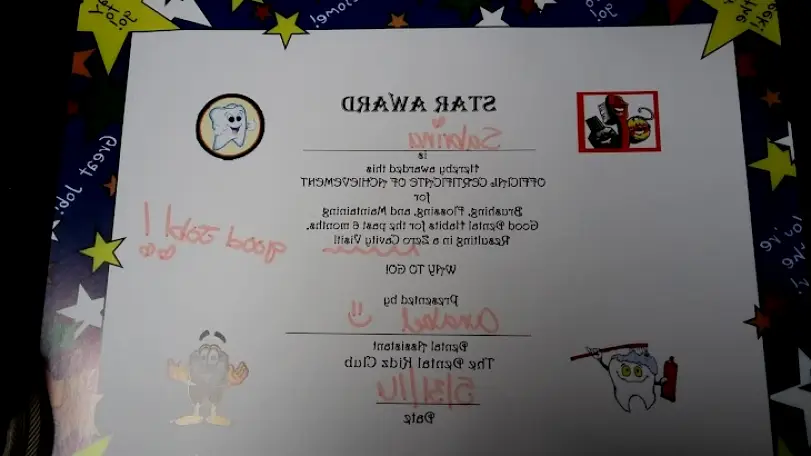 STAR AWARD
Sabrina
is
Hereby awarded this
OFFICIAL CERTIFICATE OF ACHIEVEMENT
for
Brushing, Flossing, and, Maintaining
Good Dental Habits for the past 6 months.
Resulting in a Zero Cavity Visit!
good Job!
WAY TO GO!
Presented by
Anabel
Dental Assistant
The Dental Kidz Club
5/31/14
Date
Great Job!
You're
the